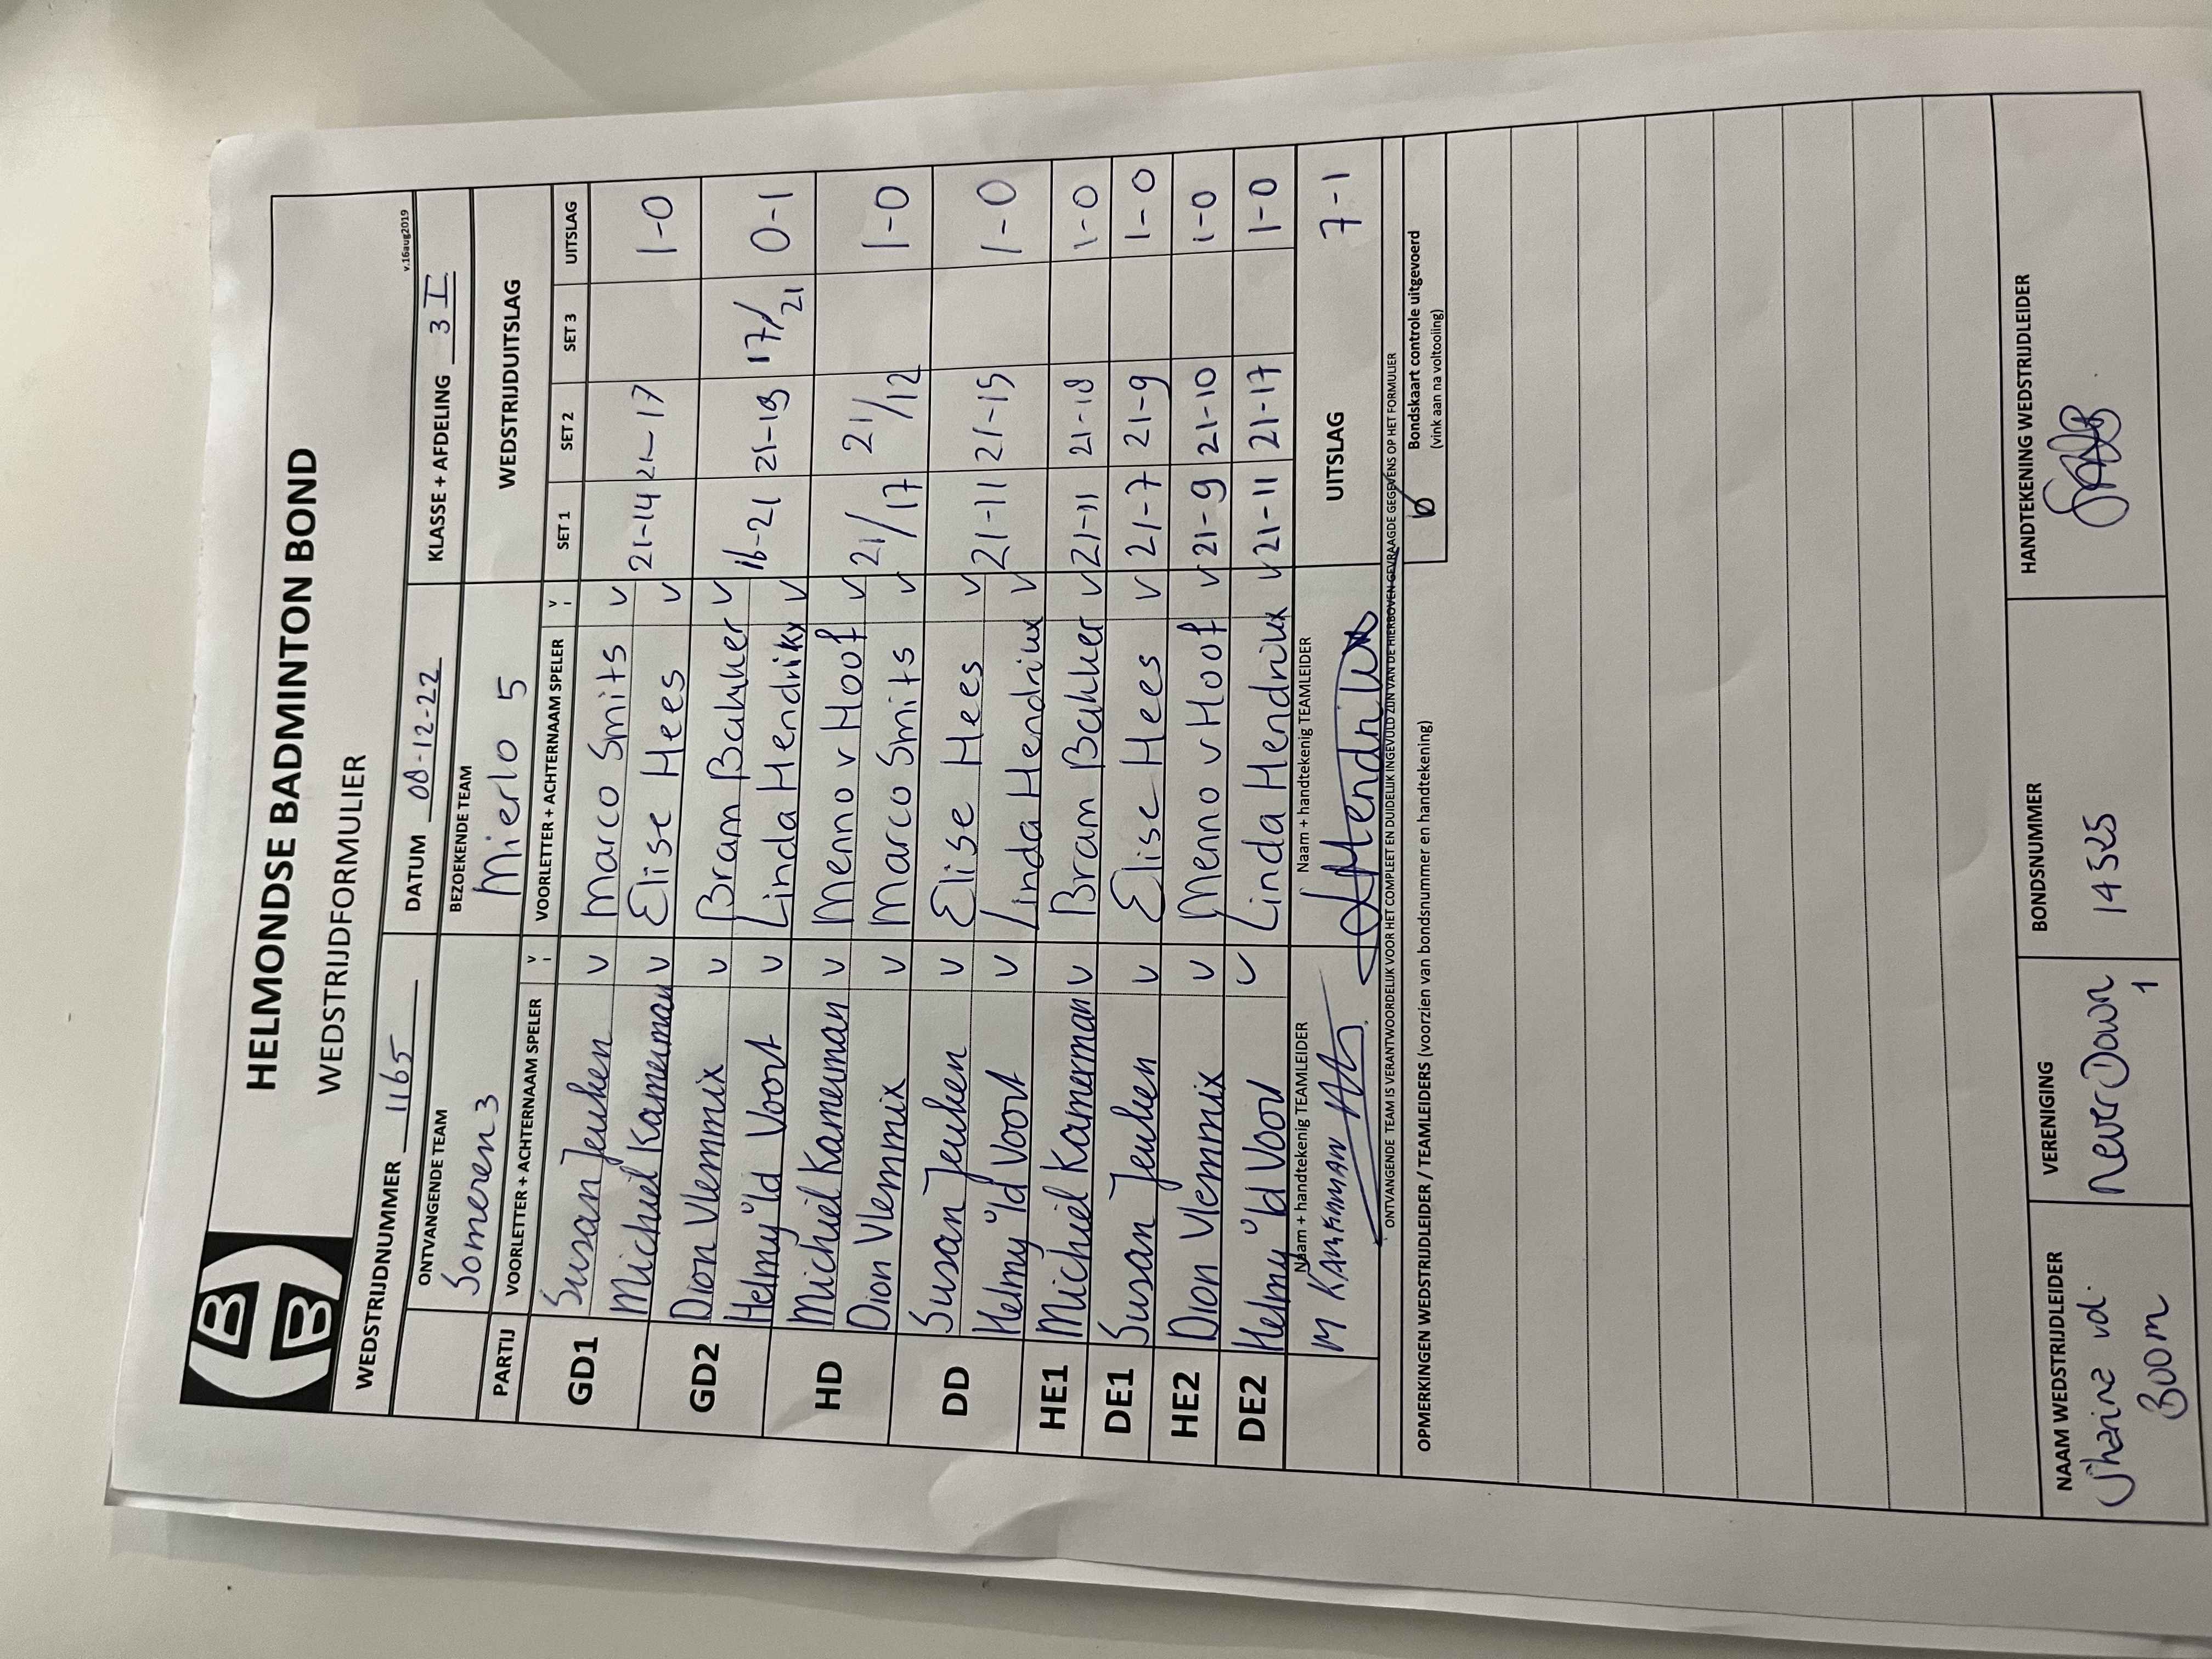 HELMONDSE BADMINTON BOND
WEDSTRIJDFORMULIER
v.16aug2019
WEDSTRIJDNUMMER 1165 DATUM 08-12-22 KLASSE + AFDELING 3 I
ONTVANGENDE TEAM BEZOEKENDE TEAM WEDSTRIJDUITSLAG
Someren 3 Mierlo 5
PARTIJ VOORLETTER + ACHTERNAAM SPELER V VOORLETTER + ACHTERNAAM SPELER V SET 1 SET 2 SET 3 UITSLAG
GD1 Susan Jeuken v Marco Smits v 21-14 21-17 1-0
Michiel Kamerman v Elise Hees v
GD2 Dion Vlemmix v Bram Bakker v 16-21 21-19 17/21 0-1
Helmy v'd Voort v Linda Hendrikx v
HD Michiel Kamerman v Menno v Hoof v 21/17 21/12 1-0
Dion Vlemmix v Marco Smits v
DD Susan Jeuken v Elise Hees v 21-11 21-15 1-0
Helmy v'd Voort v Linda Hendrikx v
HE1 Michiel Kamerman v Bram Bakker v 21-11 21-18 1-0
DE1 Susan Jeuken v Elise Hees v 21-7 21-9 1-0
HE2 Dion Vlemmix v Menno v Hoof v 21-9 21-10 1-0
DE2 Helmy v'd Voort v Linda Hendrikx v 21-11 21-17 1-0
Naam + handtekenig TEAMLEIDER Naam + handtekenig TEAMLEIDER UITSLAG 7-1
M KAMERMAN Hendrikx
ONTVANGENDE TEAM IS VERANTWOORDELIJK VOOR HET COMPLEET EN DUIDELIJK INGEVULD ZIJN VAN DE HIERBOVEN GEVRAAGDE GEGEVENS OP HET FORMULIER
OPMERKINGEN WEDSTRIJDLEIDER / TEAMLEIDERS (voorzien van bondsnummer en handtekening) Bondskaart controle uitgevoerd
(vink aan na voltooiing)
NAAM WEDSTRIJDLEIDER VERENIGING BONDSNUMMER HANDTEKENING WEDSTRIJDLEIDER
vd. Never Down 14525
Boom 1